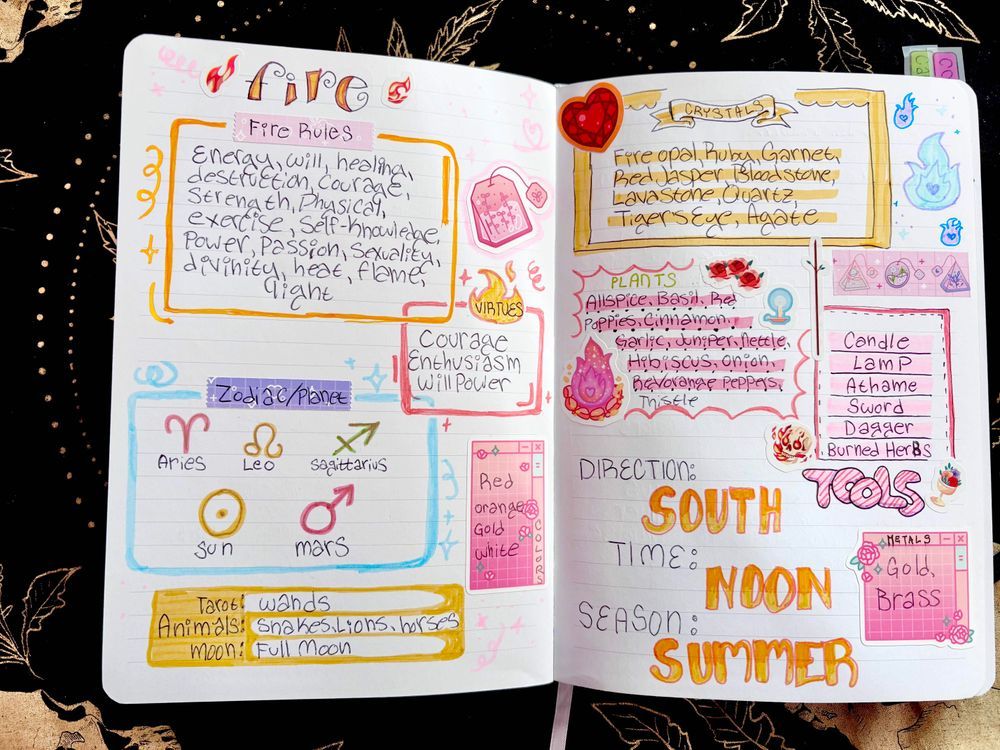 fire
Fire Rules
Energy, will, healing,
destruction, Courage,
Strength, Physical,
exercise, Self-knowledge,
Power, Passion, Sexuality,
divinity, heat, flame,
light
VIRTUES
Courage
Enthusiasm
WillPower
Zodiac/Planet
Aries Leo Sagittarius
Sun mars
Red
orange
Gold
white
COLORS
Tarot: wands
Animals: snakes, Lions, horses
moon: Full Moon
CRYSTALS
Fire opal, Ruby, Garnet,
Red, Jasper, Bloodstone,
Lavastone, Quartz,
Tiger's Eye, Agate
PLANTS
Allspice, Basil, Red
Poppies, Cinnamon,
Garlic, Juniper, Nettle,
Hibiscus, Onion,
Peppers,
Thistle
Candle
LamP
Athame
Sword
Dagger
Burned HerBs
TOOLS
DIRECTION:
SOUTH
TIME:
NOON
SEASON:
SUMMER
METALS
Gold,
Brass